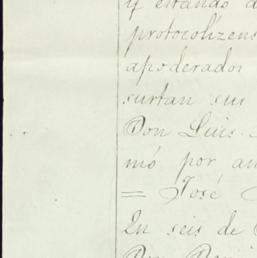 y estando
protocolizens
apoderador
surtan sus
Don Luis
mó por an
= José
En seis de
Don